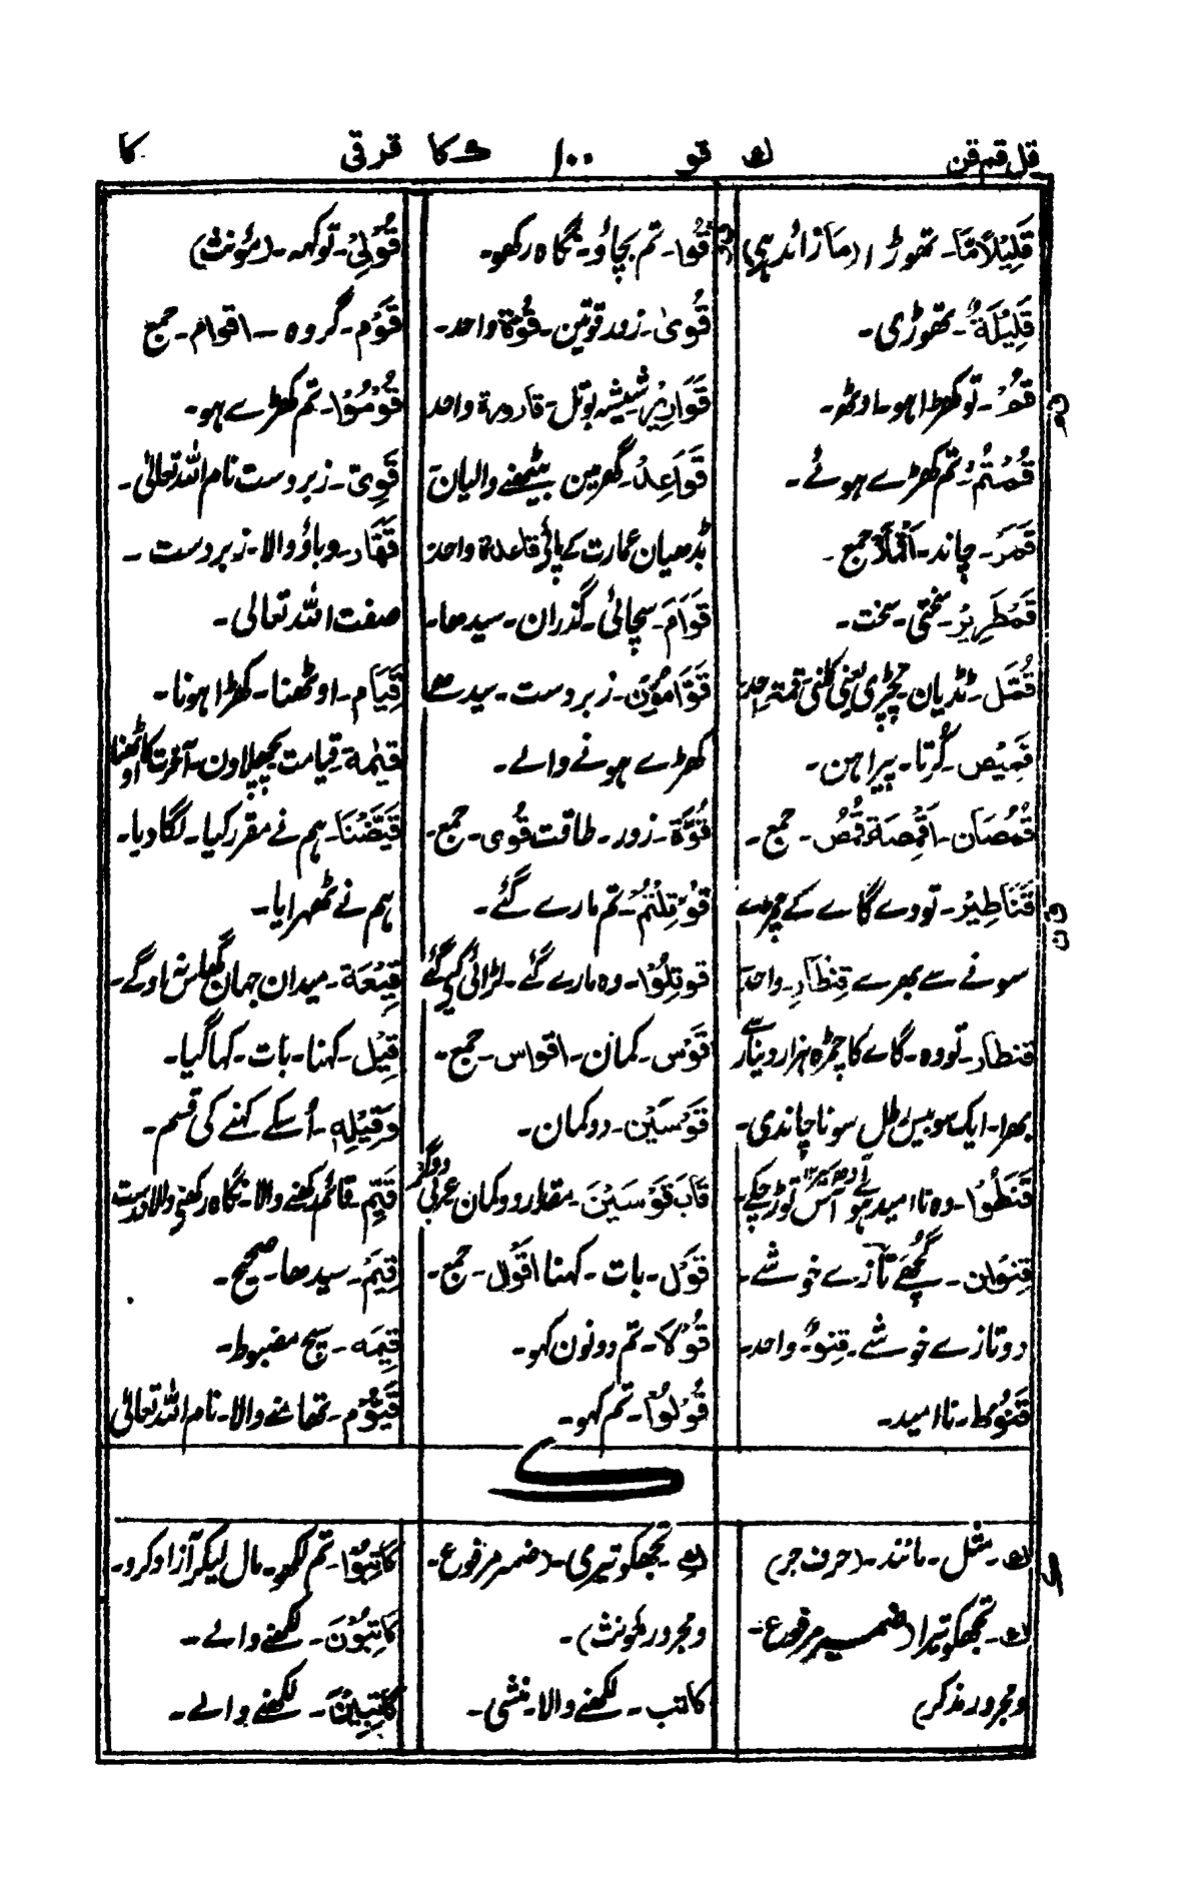 قل قم قن ک قو ١٠٠ ک کا ق قی کا
قَلِيْلًا مَّا۔ تھوڑا (ما زائد ہی)
قَلِيْلَةٌ۔ تھوڑی۔
قُمْ۔ تو کھڑا ہو۔ اوٹھ۔
قُمْتُمْ۔ تم کھڑے ہوئے۔
قَمَر۔ چاند۔ اَقْمَار جمع۔
قَمْطَرِيْر۔ سختی۔ سخت۔
قُمَّل۔ ٹڈیان۔ چچڑی یعنی کلنی قملۃ واحد۔
قَمِيْص۔ کُرتا۔ پیراہن۔
قُمْصَان۔ اَقْمِصَة قُمُص۔ جمع۔
قَنَاطِيْر۔ تودے گاے کے چمڑے
سونے سے بھرے قِنْطَار۔ واحد
قنطار۔ تودہ۔ گاے کا چمڑہ ہزار دینار سے
بھرا۔ ایک سو بیس رطل سونا چاندی۔
قَنَطُوْا۔ وہ نا امید ہوئے آس توڑ چکے۔
قِنْوَان۔ گچھے تازے خوشے۔
دو تازے خوشے۔ قِنْوٌ۔ واحد۔
قَنُوْط۔ نا امید۔
قو
قُوْا۔ تم بچاؤ۔ نگاہ رکھو۔
قُوىٰ۔ زور قوتین۔ قُوّة واحد۔
قَوَارِيْر۔ شیشہ بوتل۔ قارورۃ واحد
قَوَاعِدُ۔ گھرمین بیٹھنے والیان
بڈھیان عمارت کے پائے قاعدۃ واحد
قَوَام۔ سچائی۔ گذران۔ سیدھا۔
قَوَّامُوْنَ۔ زبردست۔ سیدھے
کھڑے ہونے والے۔
قُوَّة۔ زور۔ طاقت قُوى۔ جمع۔
قُوْتِلْتُمْ۔ تم مارے گئے۔
قُوْتِلُوْا۔ وہ مارے گئے۔ لڑائی کیے گئے
قَوْس۔ کمان۔ اقواس۔ جمع۔
قَوْسَيْن۔ دو کمان۔
قَابَ قَوْسَيْنَ۔ مقدار دو کمان عربی دو گز
قَوْل۔ بات۔ کہنا اَقْوَال۔ جمع۔
قُوْلَا۔ تم دونون کہو۔
قُوْلُوْا۔ تم کہو۔
قُوْلِيْ۔ تو کہہ۔ (مؤنث)
قَوْم۔ گروہ۔ اقوام۔ جمع
قُوْمُوْا۔ تم کھڑے ہو۔
قَوِيّ۔ زبردست نام اللہ تعالیٰ۔
قَهَّار۔ دباؤ والا۔ زبردست۔
صفت اللہ تعالی۔
قِيَام۔ اوٹھنا۔ کھڑا ہونا۔
قيٰمة۔ قیامت پچھلا دن۔ آخرت کا اوٹھنا
قَيَّضْنَا۔ ہم نے مقرر کیا۔ لگا دیا۔
ہم نے ٹھہرایا۔
قِيْعَة۔ میدان جہان گھاس نہ اوگے۔
قِيْل۔ کہنا۔ بات۔ کہا گیا۔
وَقِيْلِهٖ۔ اُسکے کہنے کی قسم۔
قَيِّم۔ قائم رکھنے والا۔ نگاہ رکھنے والا درست
قِيَمْ۔ سیدھا۔ صحیح۔
قَيِّمَه۔ سچ مضبوط۔
قَيُّوْم۔ تھامنے والا۔ نام اللہ تعالیٰ
ک
ک۔ مثل۔ مانند۔ (حرف جر)
ک۔ تجھکو تیرا (ضمیر مرفوع۔
و مجرور مذکر)
كِ۔ تجھکو تیری۔ (ضمیر مرفوع۔
و مجرور مؤنث)۔
کاتب۔ لکھنے والا۔ منشی۔
كَاتِبُوْا۔ تم لکھو۔ مال لیکر آزاد کرو۔
كَاتِبُوْنَ۔ لکھنے والے۔
كَاتِبِيْنَ۔ لکھنے والے۔